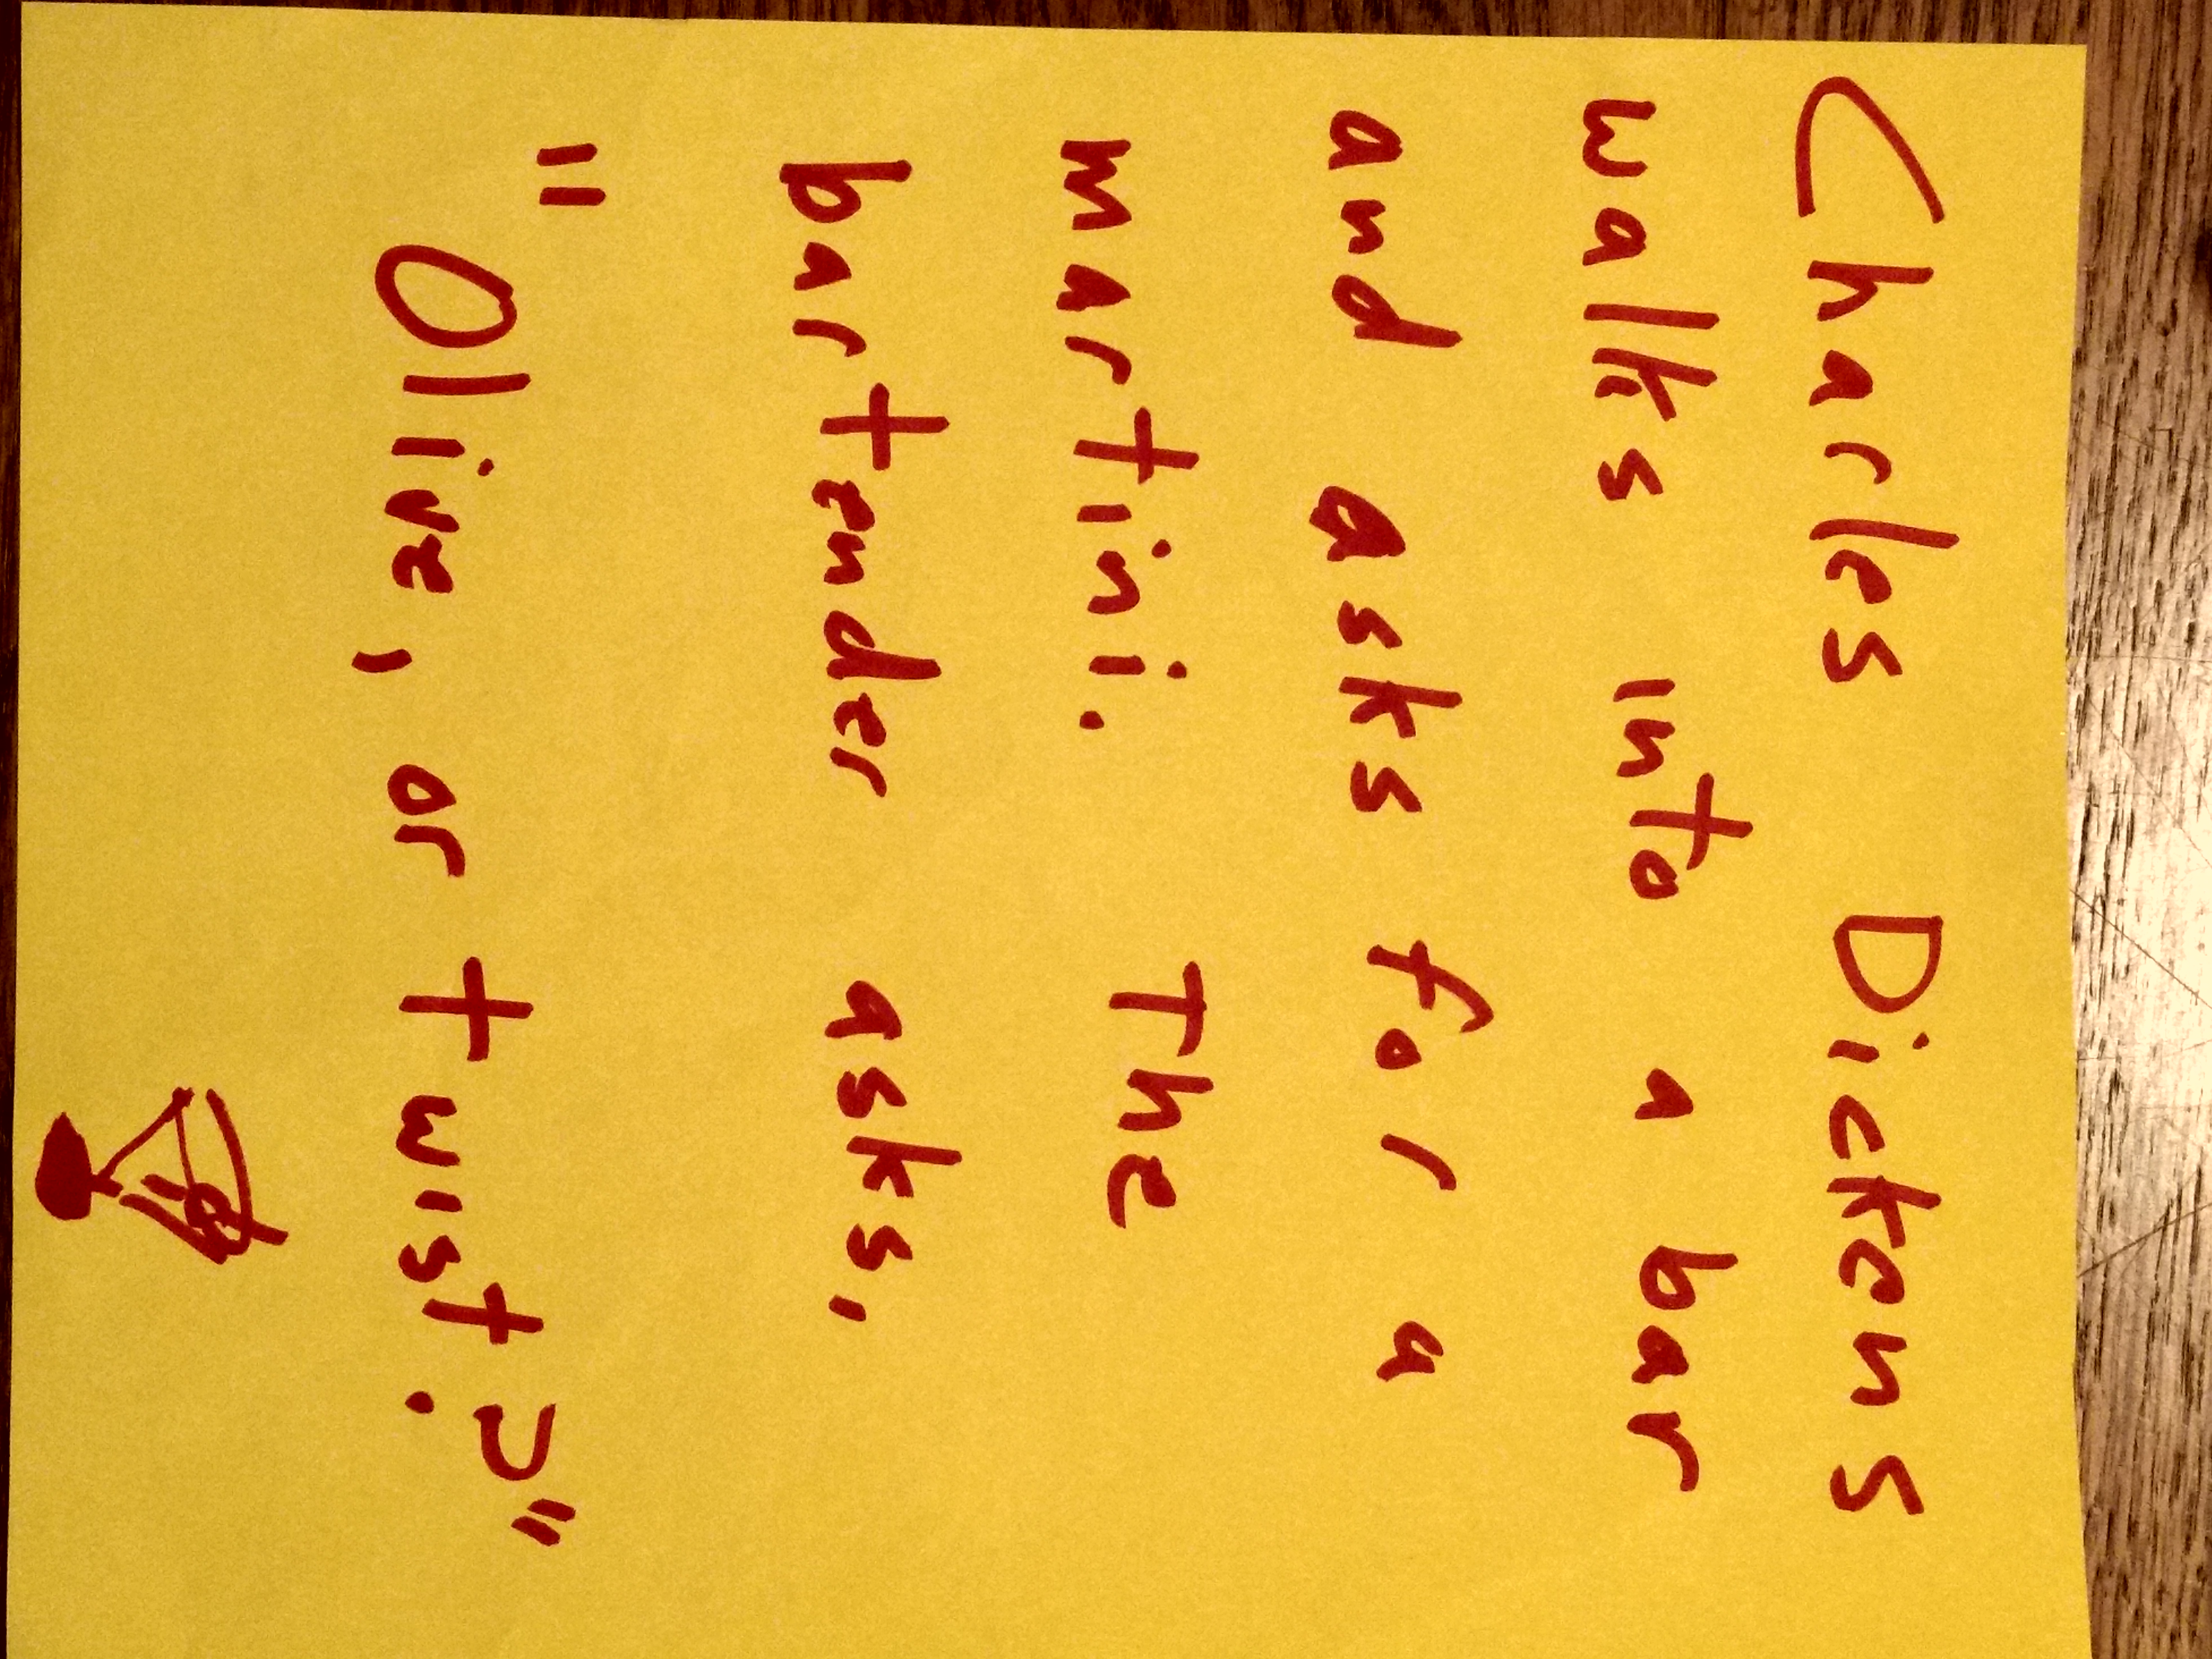 Charles Dickens
walks into a bar
and asks for a
martini. The
bartender asks,
"Olive, or twist?"